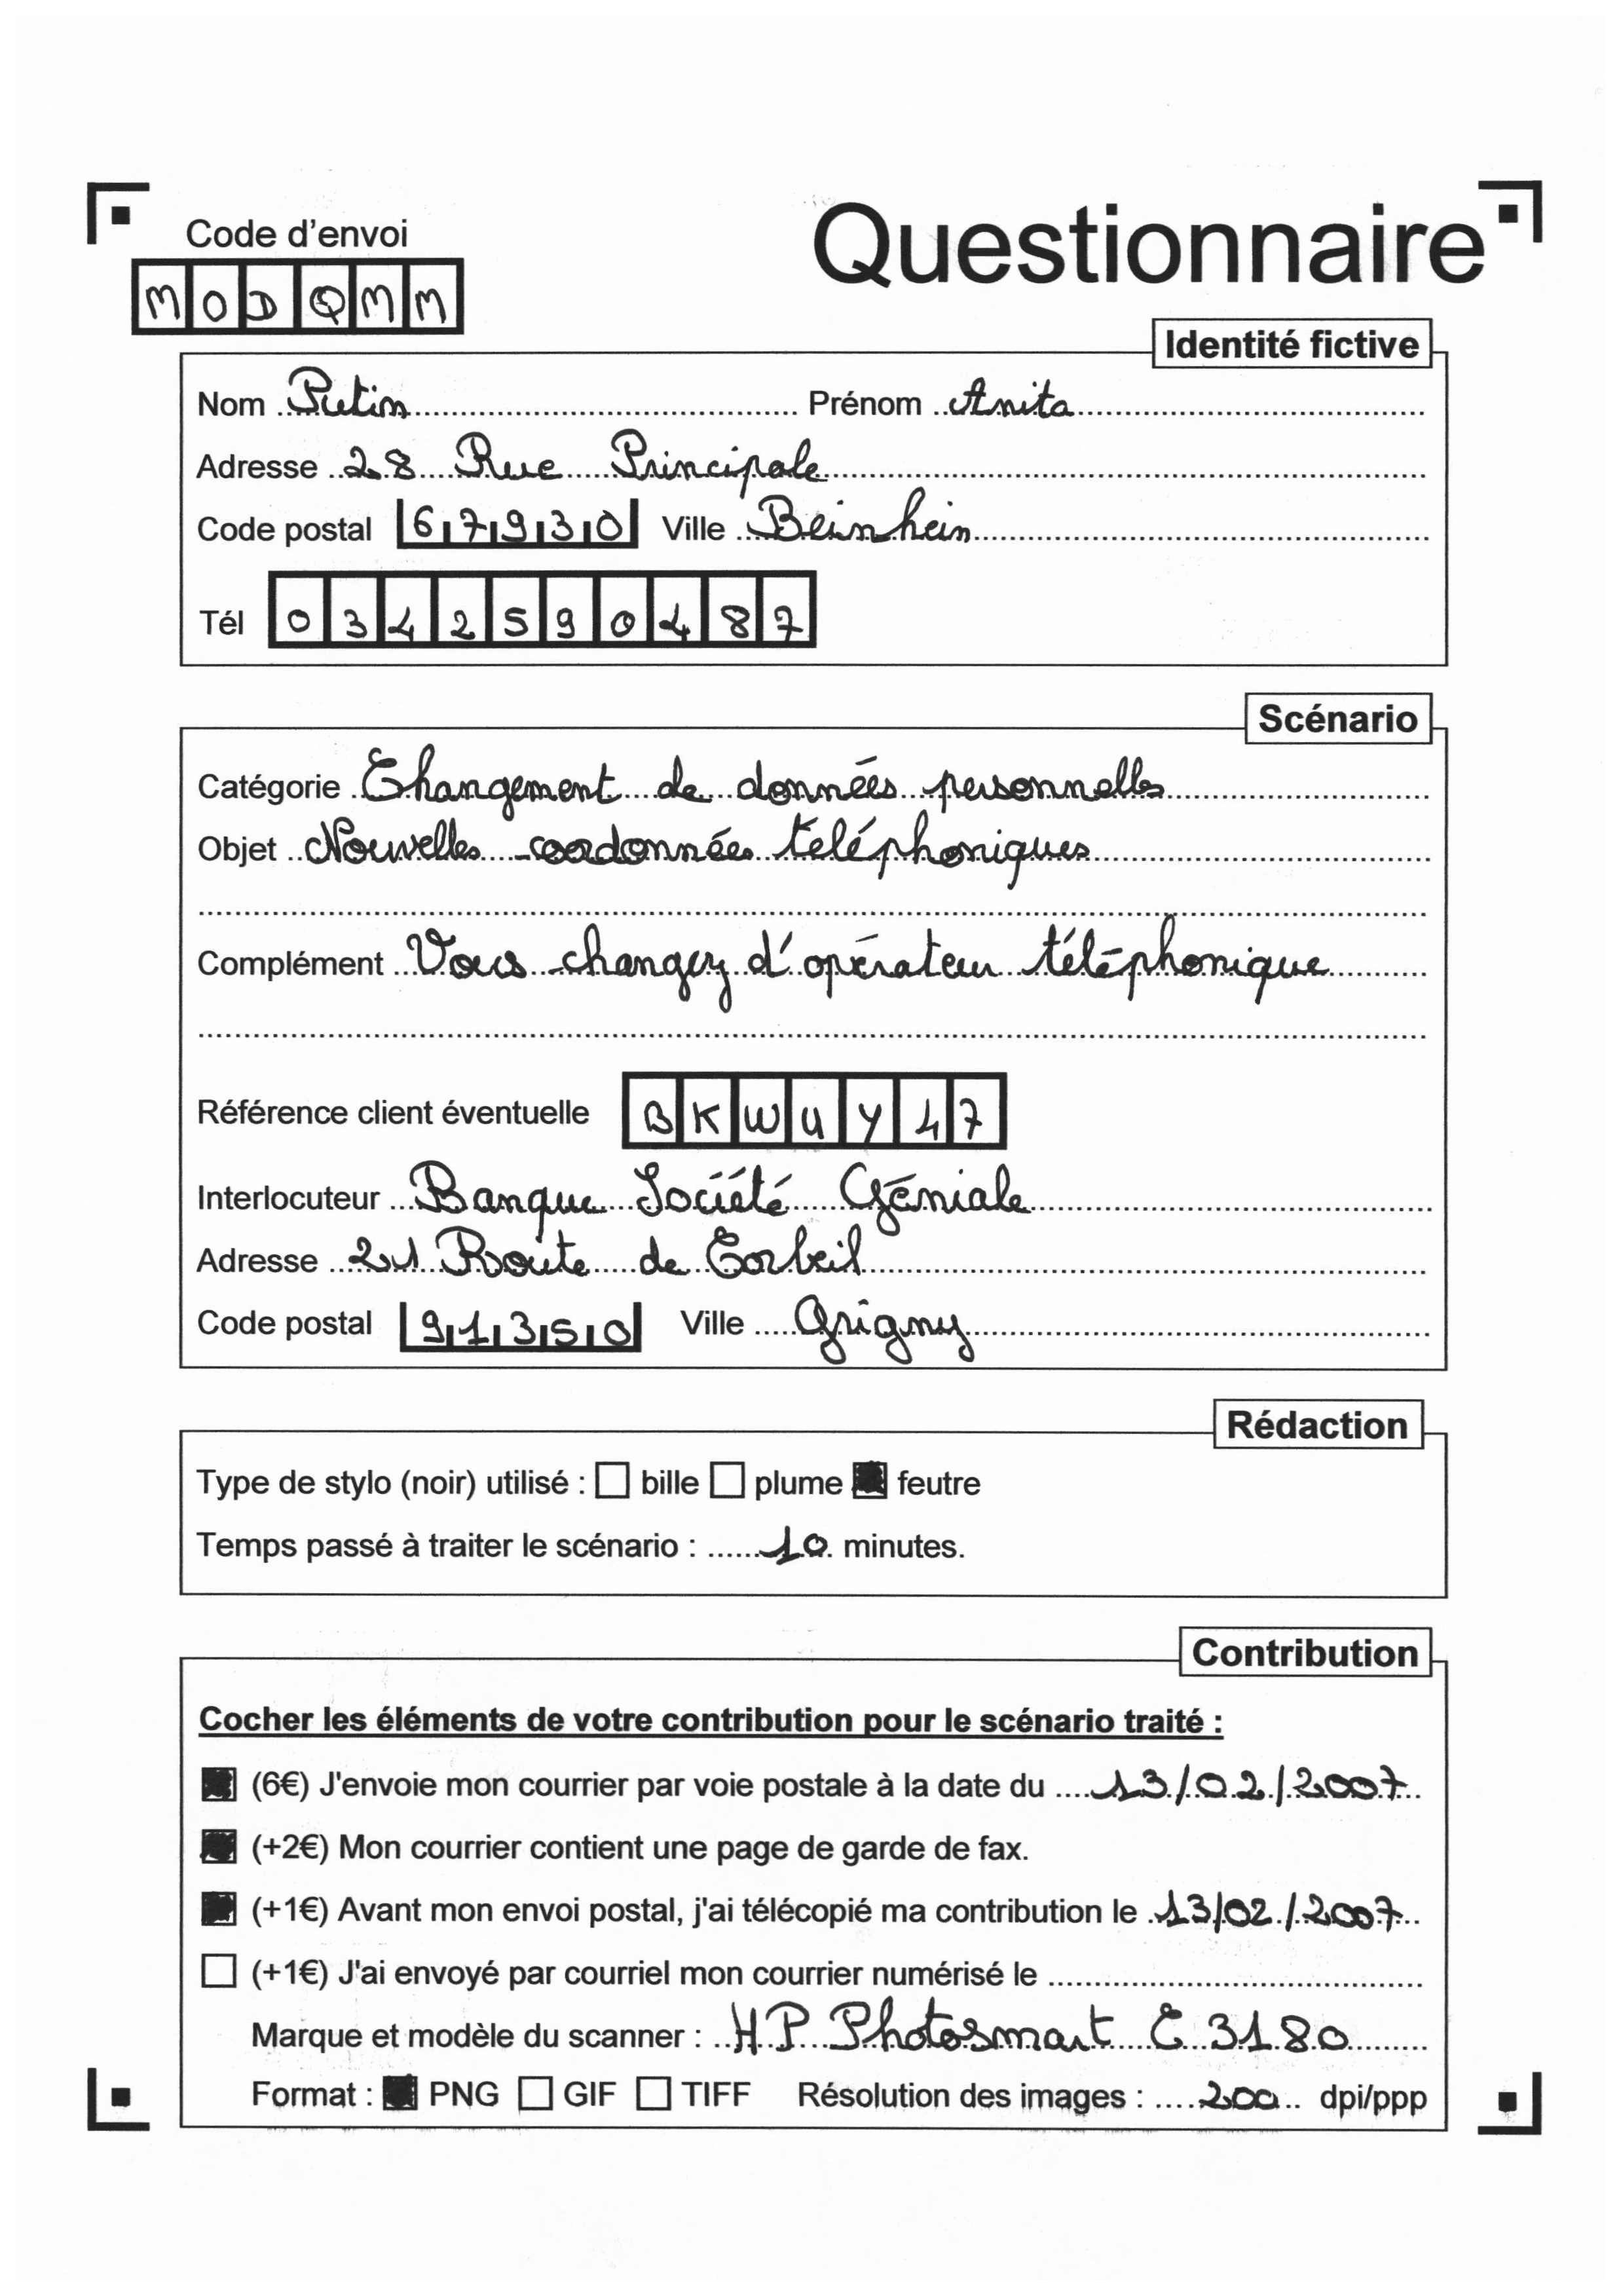 Code d'envoi
Questionnaire
MODQMM
Identité fictive
Nom Putin Prénom Anita
Adresse 28 Rue Principale
Code postal 67930 Ville Beinheim
Tél 0342590487
Scénario
Catégorie Changement de données personnelles
Objet Nouvelles coordonnées téléphoniques
Complément Vous changez d'opérateur téléphonique
Référence client éventuelle BKWUY47
Interlocuteur Banque Société Géniale
Adresse 21 Route de Corbeil
Code postal 91350 Ville Grigny
Rédaction
Type de stylo (noir) utilisé : bille plume feutre
Temps passé à traiter le scénario : 10 minutes.
Contribution
Cocher les éléments de votre contribution pour le scénario traité :
(6€) J'envoie mon courrier par voie postale à la date du 13/02/2007
(+2€) Mon courrier contient une page de garde de fax.
(+1€) Avant mon envoi postal, j'ai télécopié ma contribution le 13/02/2007
(+1€) J'ai envoyé par courriel mon courrier numérisé le
Marque et modèle du scanner : HP Photosmart C 3180
Format : PNG GIF TIFF Résolution des images : 200 dpi/ppp